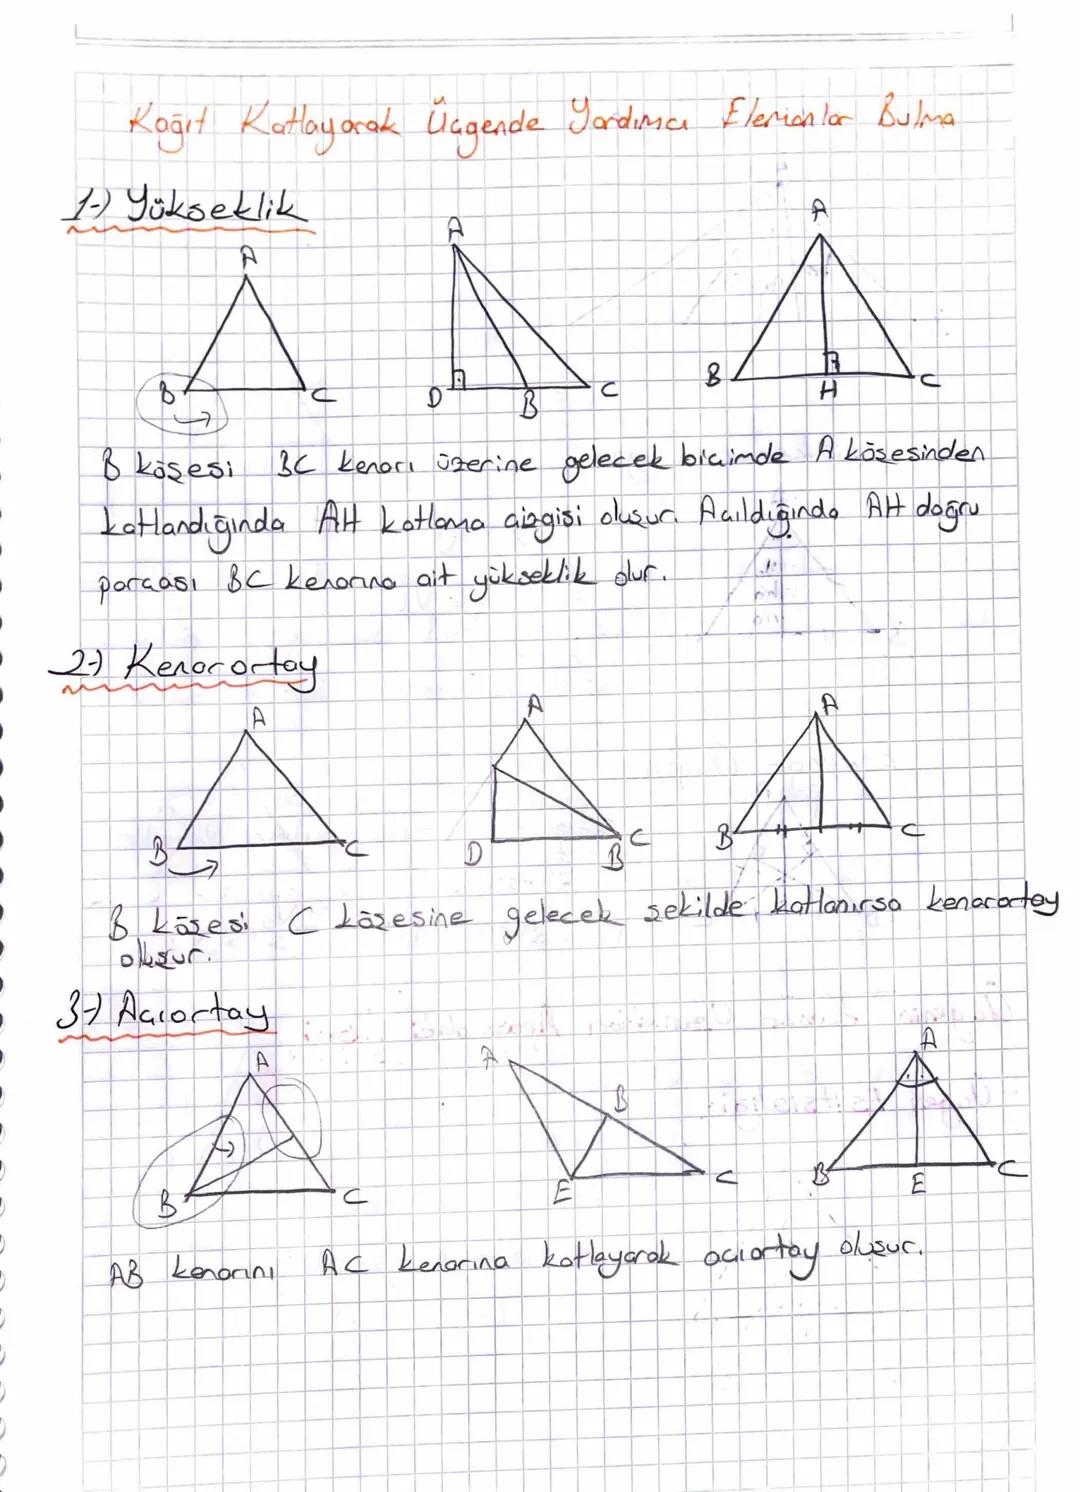 Kağıt Katlayarak Üçgende Yardımcı Elemanlar Bulma
1-) Yükseklik
A A A
B C D B C B H C
B köşesi BC kenarı üzerine gelecek biçimde A köşesinden
katlandığında AH katlama çizgisi oluşur. Açıldığında AH doğru
parçası BC kenarına ait yükseklik olur.
2-) Kenarortay
A A A
B C D B C B C
B köşesi C köşesine gelecek şekilde katlanırsa kenarortay
oluşur.
3-) Açıortay
A A B A
B C E C B E C
AB kenarını AC kenarına katlayarak açıortay oluşur.